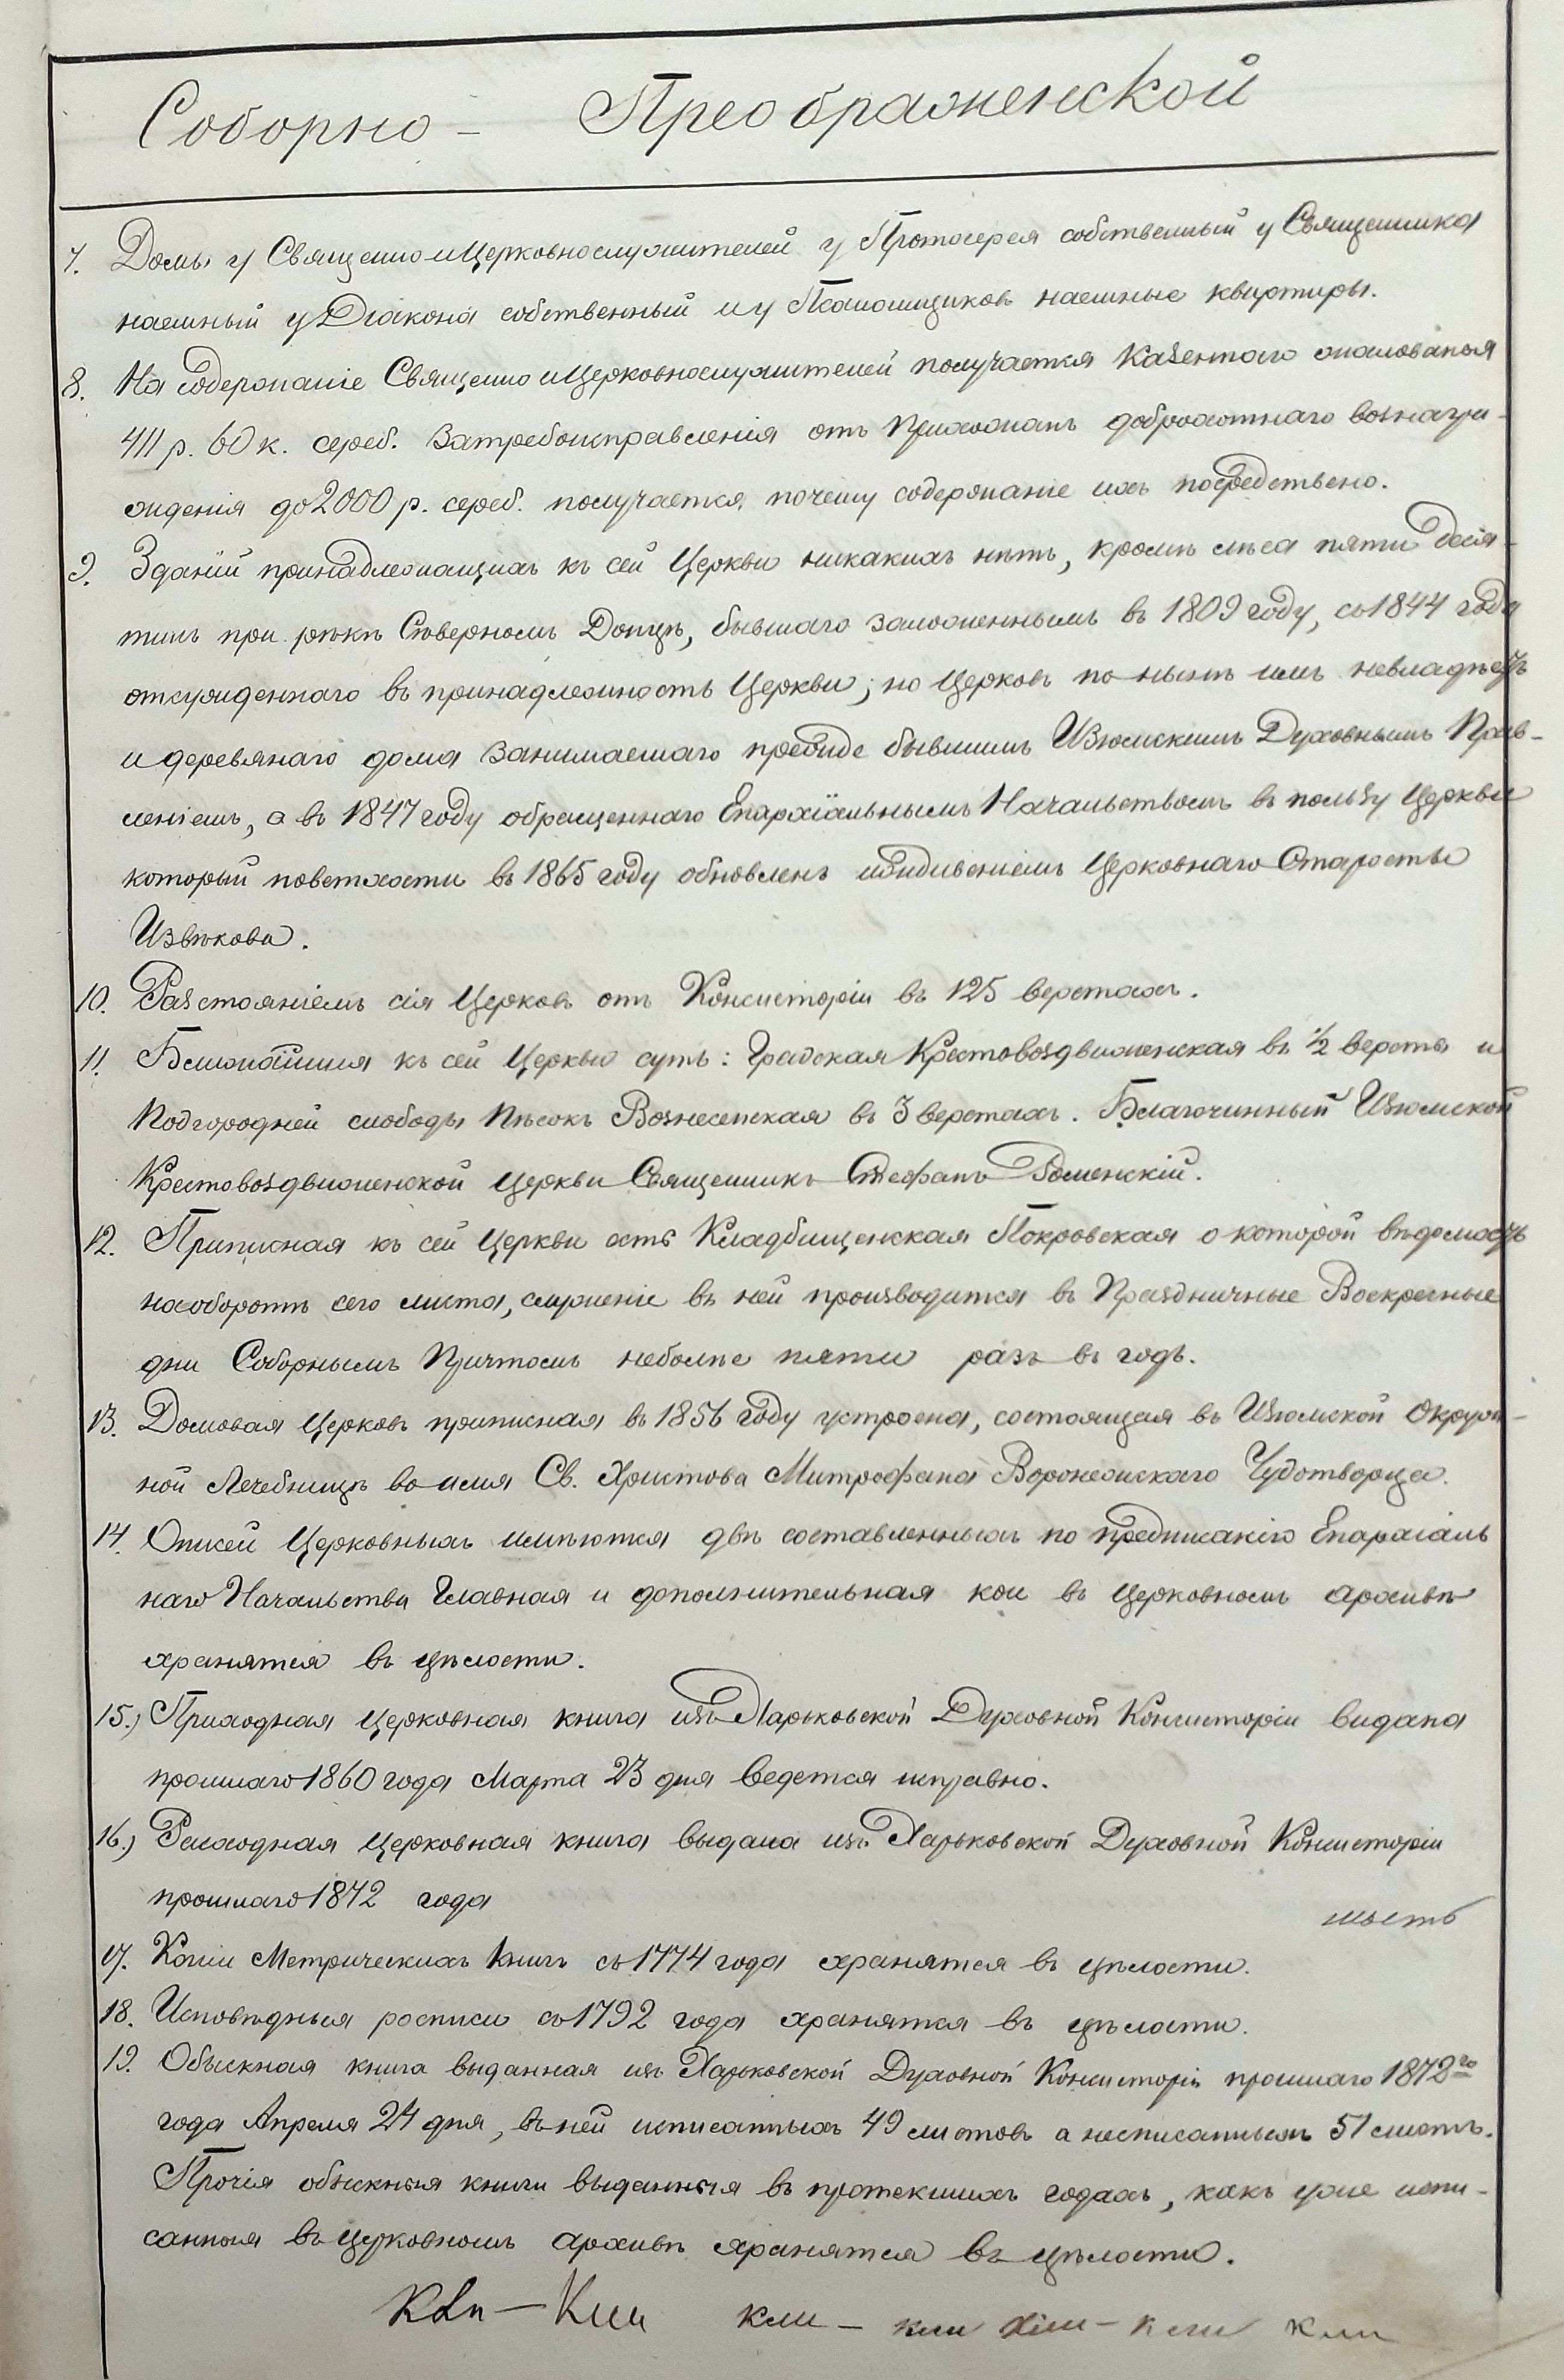 Соборно – Преображенской
7. Домы у Священноицерковнослужителей у Протоиерея собственный у Священника
наемный у Діакона собственный и у Псаломщиковъ наемные квартиры.
8. На содержаніе Священно ицерковнослужителей получается казеннаго жалованья
411 р. 60 к. сереб. затребоисправленія отъ прихожанъ доброхотнаго вознагра-
жденія до 2000 р. сереб. получается, почему содержаніе ихъ посредствено.
9. Зданій принадлежащихъ къ сей Церкви никакихъ нѣтъ, кромѣ лѣса пяти деся-
тинъ при рѣкѣ Сѣверномъ Донцѣ, бывшаго заложеннымъ въ 1809 году, съ 1844 года
отсужденнаго въ принадлежность Церкви; но Церковь по нынѣ имъ невладѣетъ
и деревянаго дома занимаемаго прежде бывшимъ Изюмскимъ Духовнымъ Прав-
леніемъ, а въ 1847 году обращеннаго Епархіальнымъ Начальствомъ въ пользу Церкви
который поветхости въ 1865 году обновленъ иждивеніемъ Церковнаго Старосты
Извѣкова.
10. Разстояніемъ сія Церковь отъ Консисторіи въ 125 верстахъ.
11. Ближайшія къ сей Церкви суть: Градская Крестовоздвиженская въ 1/2 версты и
Подгородней слободы Пѣсокъ Вознесенская въ 3 верстахъ. Благочинный Изюмской
Крестовоздвиженской Церкви Священникъ Стефанъ Роменскій.
12. Приписная къ сей Церкви есть Кладбищенская Покровская о которой вѣдомость
наоборотѣ сего листа, служеніе въ ней производится въ Праздничные Воскресные
дни Соборнымъ Причтомъ неболѣе пяти разъ въ годъ.
13. Домовая Церковь приписная въ 1856 году устроена, состоящая въ Изюмской Окруж-
ной Лечебницѣ во имя Св. Христова Митрофана Воронежскаго Чудотворца.
14. Описей Церковныхъ имѣются двѣ составленныхъ по предписанію Епархіаль
наго Начальства Главная и дополнительная кои въ Церковномъ архивѣ
хранятся въ цѣлости.
15.) Приходная Церковная книга изъ Харьковской Духовной Консисторіи видана
прошлаго 1860 года Марта 23 дня ведется исправно.
16.) Расходная Церковная книга выдана изъ Харьковской Духовной Консисторіи
прошлаго 1872 года
17. Копіи Метрическихъ книгъ съ 1774 года хранятся въ цѣлости.
18. Исповѣдныя росписи съ 1792 года хранятся въ цѣлости.
19. Обыскная книга выданная изъ Харьковской Духовной Консисторіи прошлаго 1872го
года Апреля 24 дня, въ ней исписанныхъ 49 листовъ а неписанныхъ 51 листъ.
Прочія обыскныя книги выданныя въ протекшихъ годахъ, какъ уже испи-
санныя въ церковномъ архивѣ хранятся въ цѣлости.